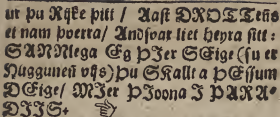 ur þu Rijke þitt / Aast DROTTens
et nam þverra / Andsvar liet heyra sitt:
SANNlega Eg PJer SEige (su er
Huggunen vijs) Þu SKallt a ÞEssum
DEige / MJer ÞJoona J PARA-
DIJS.